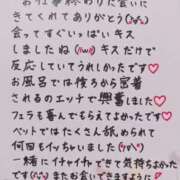 お仕事終わりに会いに
きてくれてありがとう(^^)
会ってすぐいっぱいキス
しましたね(^^) キスだけで
反応していてうれしかったです♡
お風呂では後ろから密着
されるのエッチで興奮しました♡
フェラも喜んでもらえてよかったです♡
ベットではたくさん舐められて
何回もイッちゃいました(^^)
一緒にイチャイチャできて気持ちよかった
です(^^)またお会いできますように♡